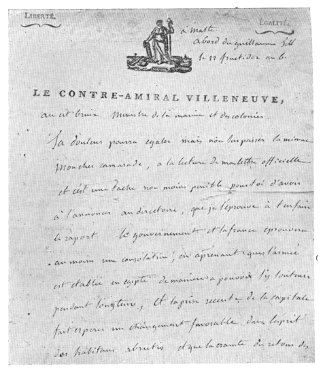 LIBERTÉ. ÉGALITÉ.
à Malte
abord du guillaume tell
le 11 fructidor an 6
LE CONTRE-AMIRAL VILLENEUVE,
au cit bruix Ministre de la marine et des colonies
Ta douleur pourra egaler mais non surpasser la mienne
Moncher camarade, a la lecture de ma lettre officielle
et c'est une tache non moins penible pour toi d'avoir
à l'annoncer au directoire, que je l'eprouve à t'en faire
le raport. le gouvernement et la france eprouvera
au moins une consolation, en aprenant que l'armée
est etablie en egypte de maniere a pouvoir s'y soutenir
pendant longtems, et la prise recente de la capitale
fait esperer un changement favorable dans l'esprit
des habitans abrutis et que la crainte du retour des